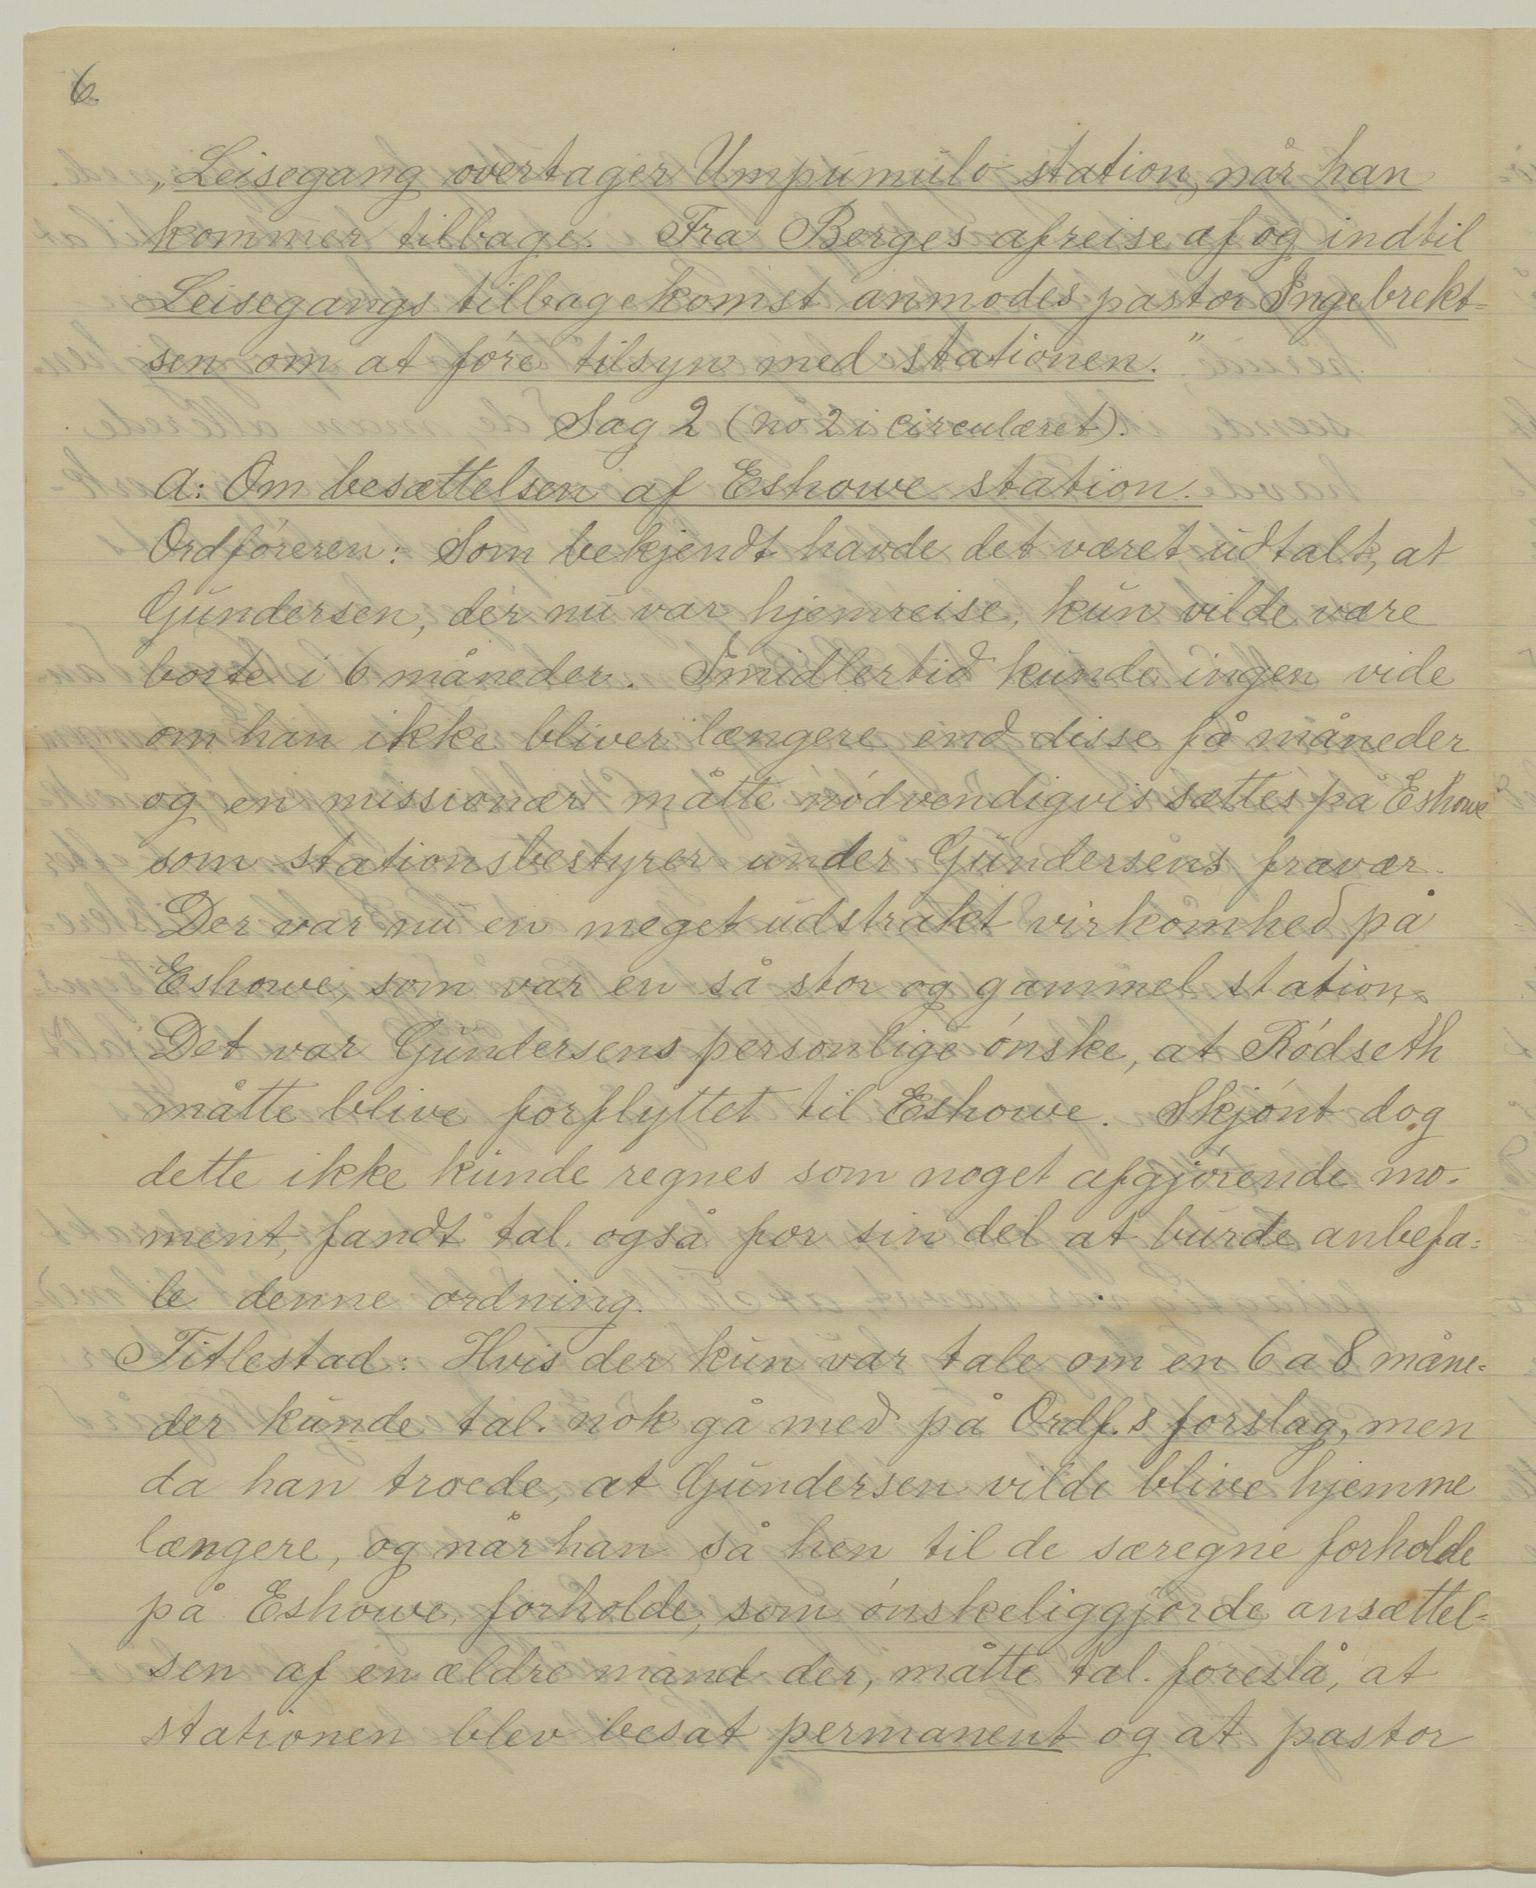 6
„Leisegang overtager Umpumulo station, når han
kommer tilbage. Fra Berges afreise af og indtil
Leisegangs tilbagekomst anmodes pastor Ingebrekt-
sen om at føre tilsyn med stationen."
Sag 2 (no 2 i circulæret).
a: Om besættelsen af Eshowe station.
Ordføreren: Som bekjendt havde det været udtalt, at
Gundersen, der nu var hjemreise, kun vilde være
borte i 6 måneder. Imidlertid kunde ingen vide
om han ikke bliver længere end disse få måneder
og en missionær måtte nødvendigvis sættes på Eshowe
som stationsbestyrer under Gundersens fravær.
Der var nu en meget udstrakt virkomhed på
Eshowe, som var en så stor og gammel station.
Det var Gundersens personlige ønske, at Rødseth
måtte blive forflyttet til Eshowe. Skjønt dog
dette ikke kunde regnes som noget afgjørende mo-
ment, fandt tal. også for sin del at burde anbefa-
le denne ordning.
Titlestad: Hvis der kun var tale om en 6 a 8 måne-
der kunde tal. nok gå med på Ordf.s forslag, men
da han troede, at Gundersen vilde blive hjemme
længere, og når han så hen til de særegne forholde
på Eshowe, forholde, som ønskeliggjorde ansættel-
sen af en ældre mand der, måtte tal. foreslå, at
stationen blev besat permanent og at pastor